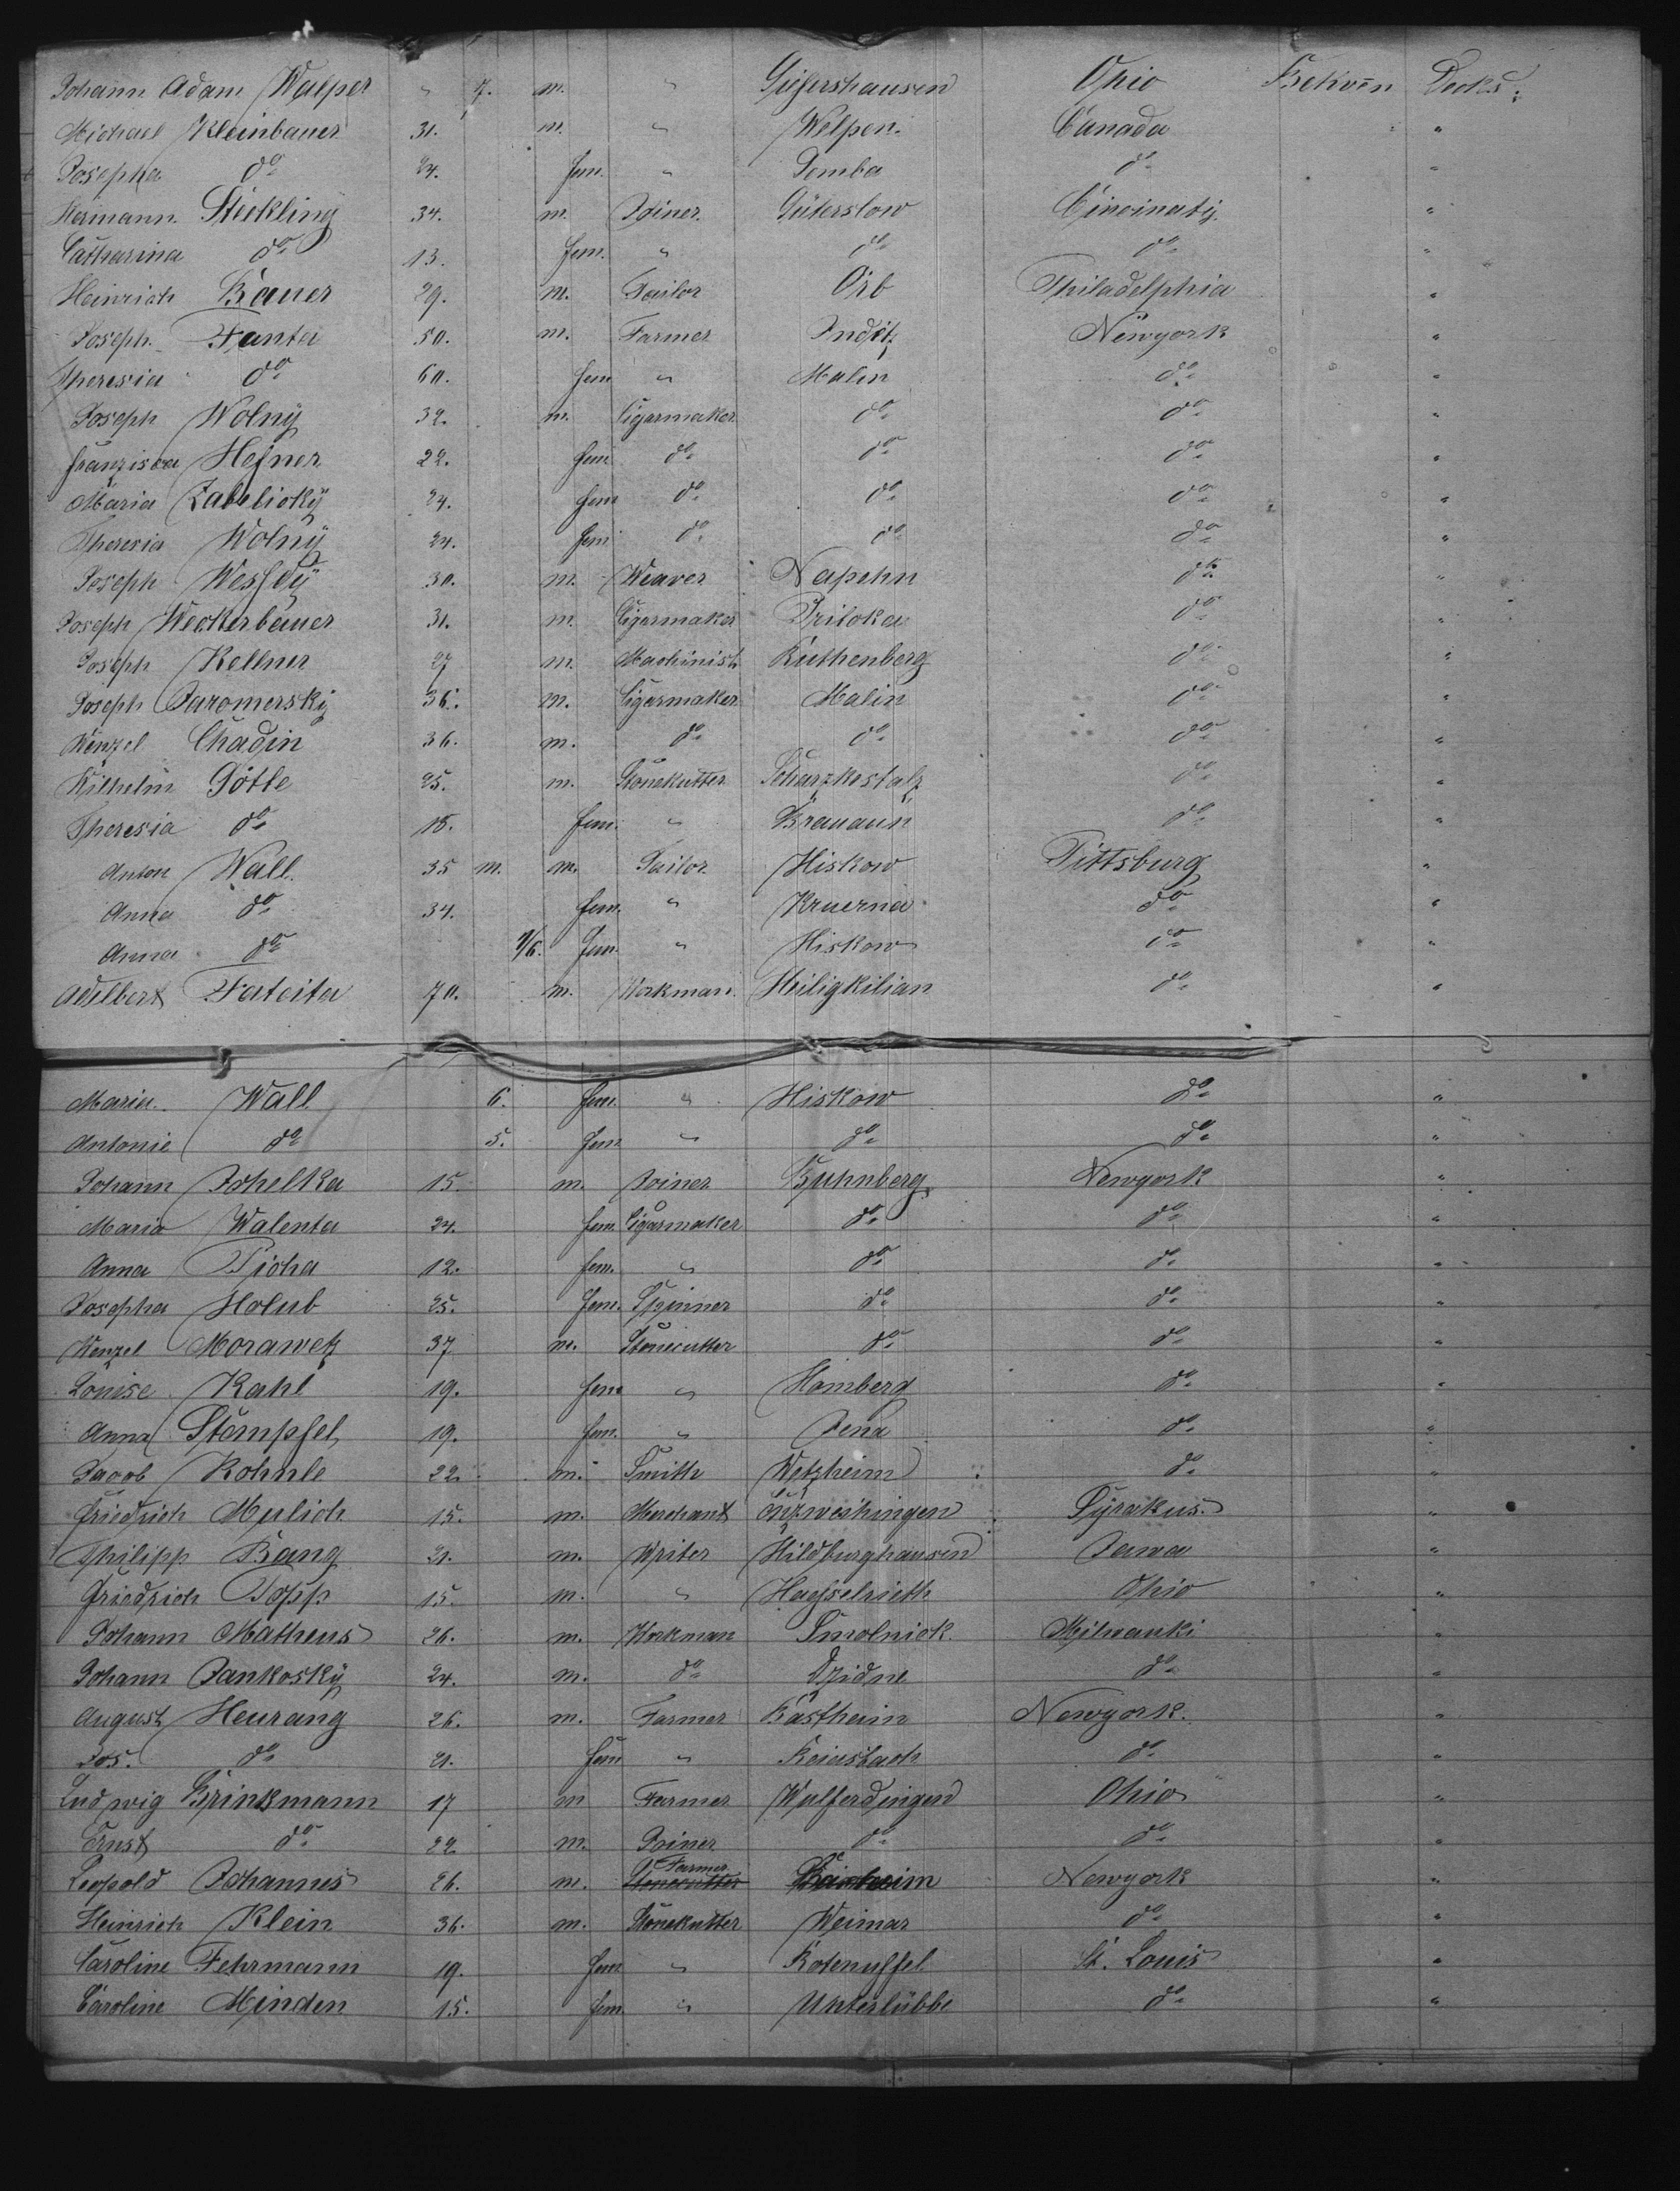 Johann Adam Walper " 7. m. " Giefershausen Ohio Betwēn Decks.
Michael Kleinbauer 31. m. " Welpen. Canada "
Josepha do 24. fem. " Pemba do "
Hermann Stickling 34. m. Joiner Güterslow Cincinaty. "
Catharina do 13. fem. " do do "
Heinrich Bauer 29. m. Tailor Orb Philadelphia "
Joseph Fanta 50. m. Farmer Newyork "
Theresia do 60. fem " Malin do "
Joseph Wolny 32. m. Cigarmaker do do "
Franziska Hefner 22. fem do do do "
Maria Zabelicky 24. fem do do do "
Theresia Wolny 24. fem do do do "
Joseph 30. m. Weaver do "
Joseph Weckerbauer 31. m. Cigarmaker do "
Joseph Kellner 27 m. Machinist Kuthenberg do "
Joseph Jaromersky 36. m. Cigarmaker Malin do "
Wenzel Chadin 36. m. do do do "
Wilhelm Götte 25. m. Stonekutter do "
Theresia do 18. fem. " Braunaun do "
Anton Wall 35 m. m. Tailor Hiskow Pittsburg "
Anna do 34. fem. " do "
Anna do fem. " Hiskow do "
Adelbert 70. m. Workman. Heiligkilian do "
Maria Wall 6. fem. " Hiskow do "
Antonie do 5. fem " do do "
Johann Johelka 15 m. Joiner Newyork "
Maria Walenta 24. fem Cigarmaker do do "
Anna Picha 12. fem. " do do "
Josepha Holub 25. fem. Spinner do do "
Wenzel Morawetz 37 m. Stonecutter do do "
Louise Kahl 19. fem " Homberg do "
Anna Stempfel 19. fem. " Jena do "
Jacob Kohnle 22. m. Smith Welzheim do "
Friedrich Mylich 15. m. Merchant Syrakus "
Philipp Bang 21. m. Writer Hildburghausen Jawa "
Friedrich Popp 15. m. " Haeßelrieth Ohio "
Johann Matheus 26. m. Workman Smolnick Milwauki "
Johann Jankosky 24. m. do Dzidne do "
August Heurang 26. m. Farmer Bastheim Newyork. "
Jos. do 21. fem " do "
Ludwig Brinkmann 17 m Farmer Wulferdingen Ohio "
Ernst do 22 m. Joiner do do "
Leopold Johannes 26. m. Farmer Newyork "
Heinrich Klein 36. m. Stonekutter Weimar do "
Caroline Fehrmann 19. fem " Rotenuffel St. Louis "
Caroline Minden 15. fem " Unterlübbe do "